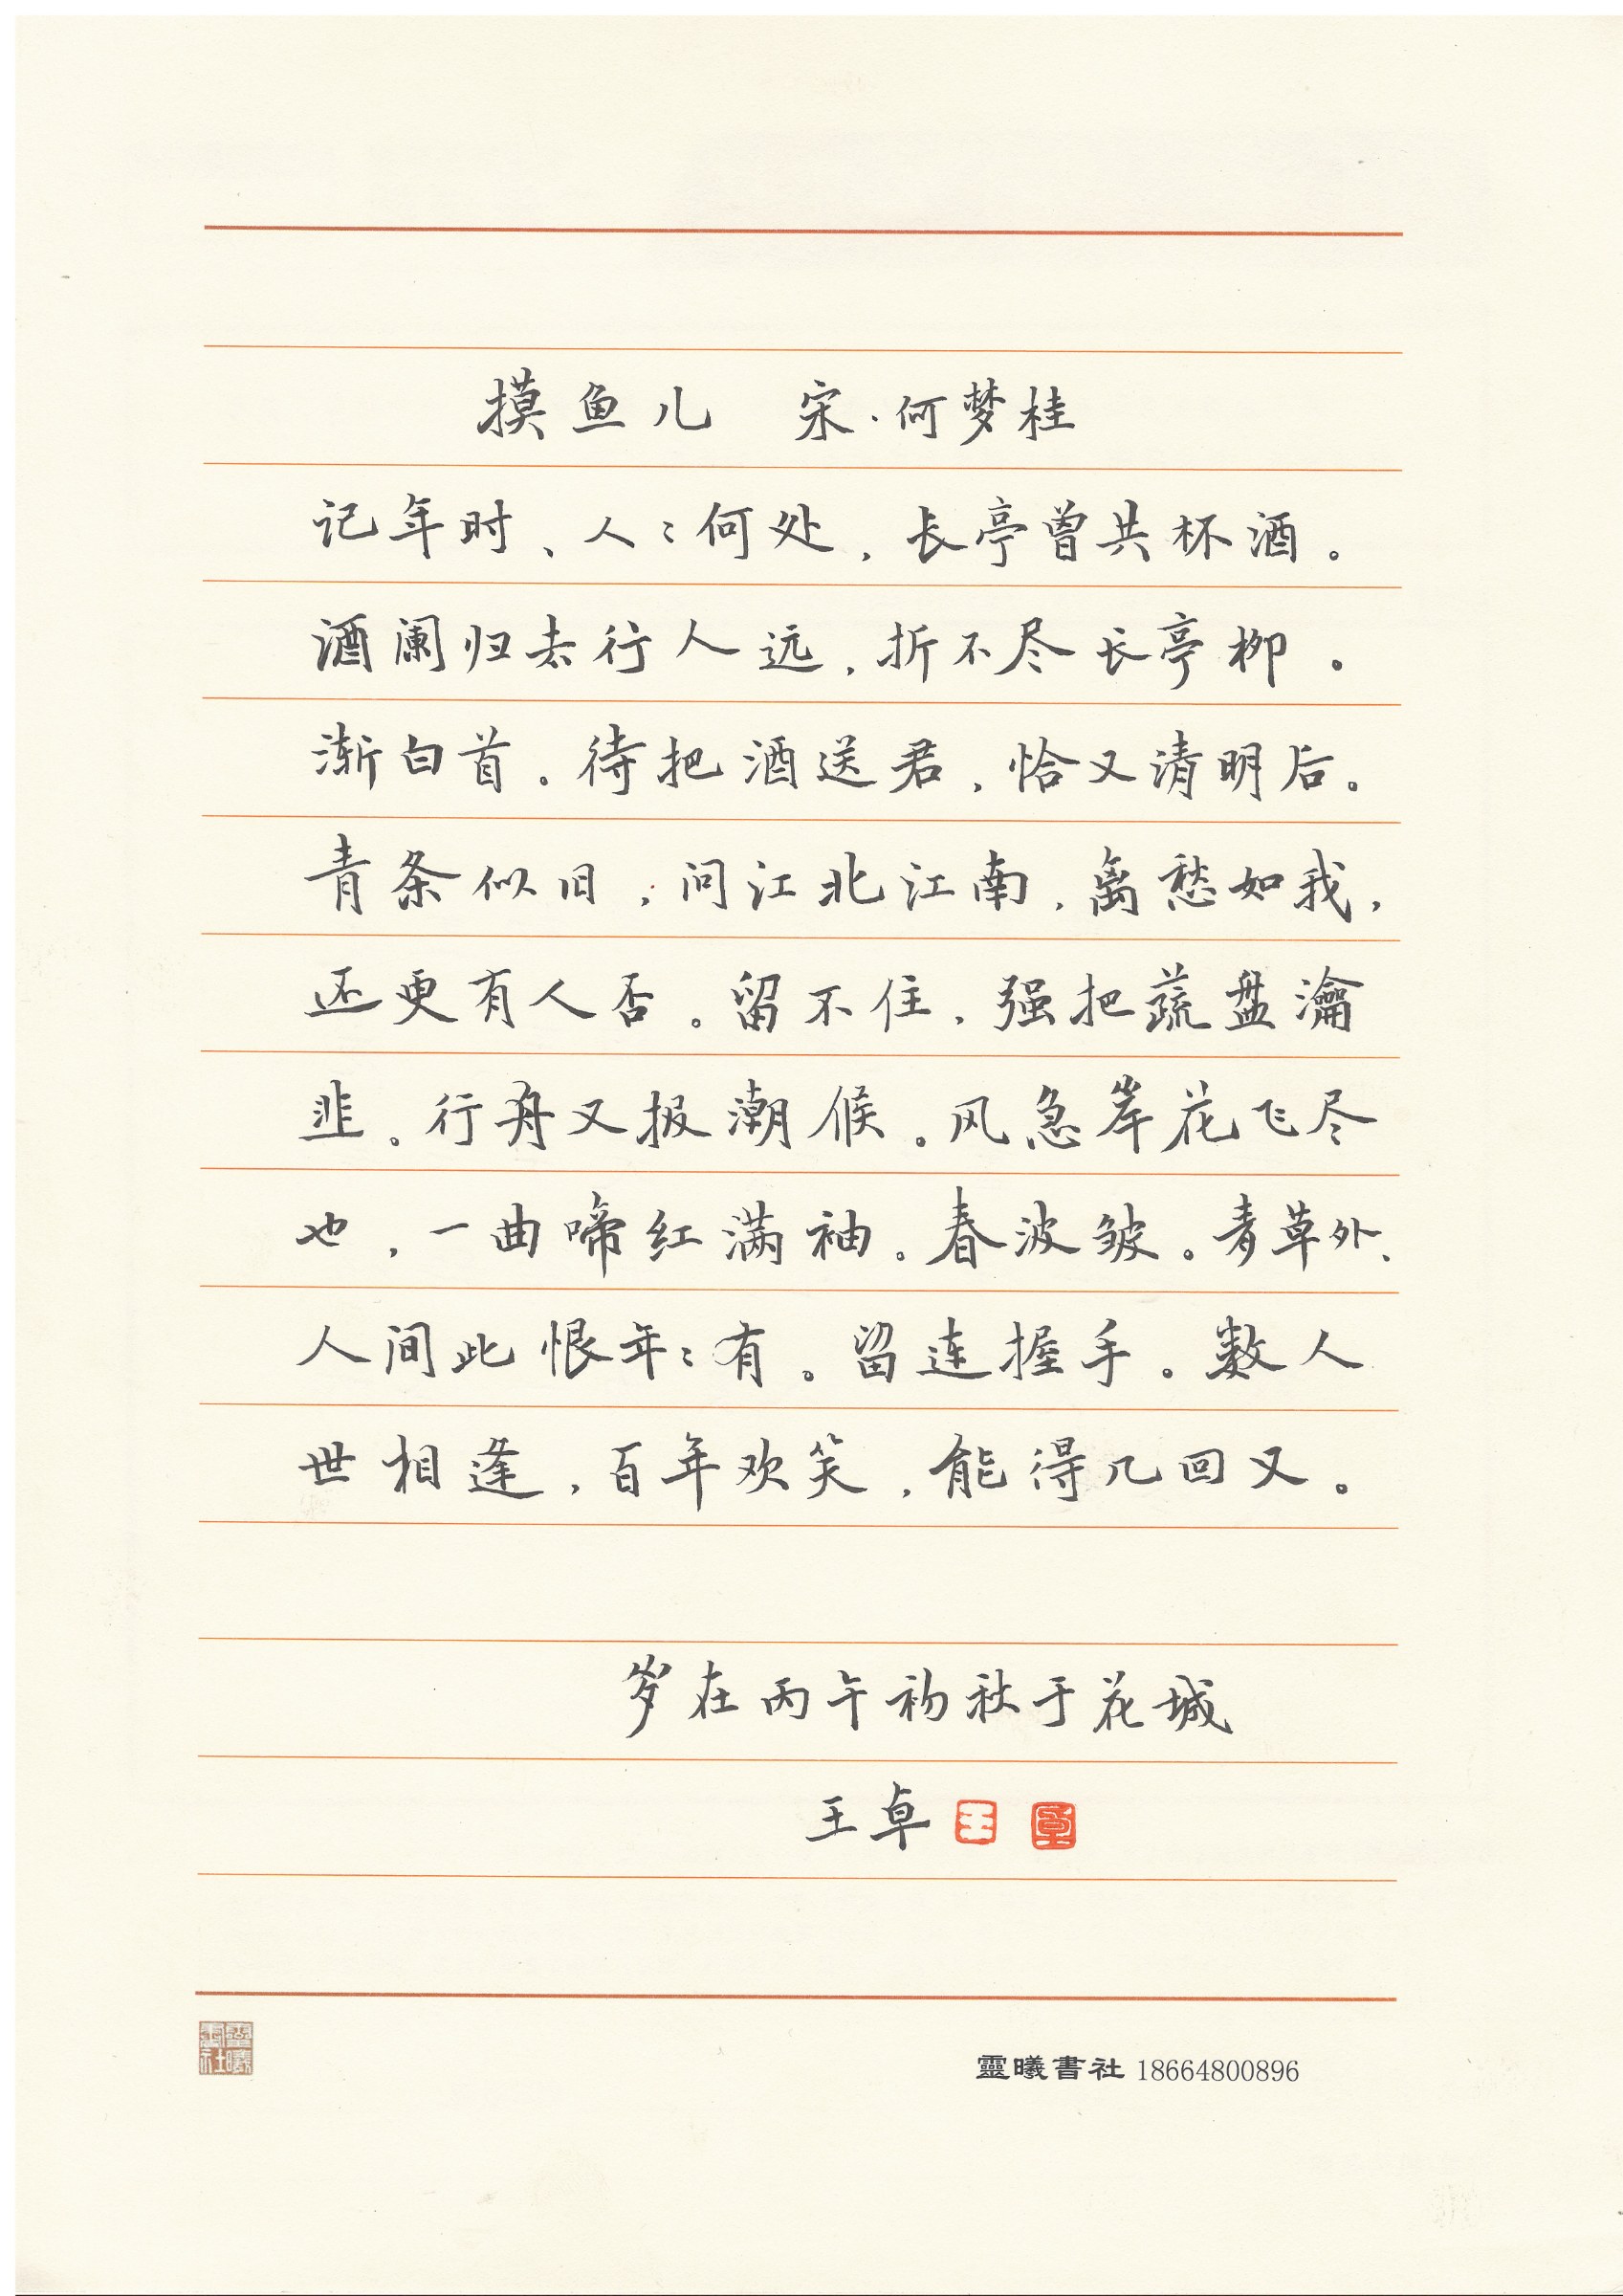 摸鱼儿 宋·何梦桂
记年时、人〻何处，长亭曾共杯酒。
酒阑归去行人远，折不尽长亭柳。
渐白首。待把酒送君，恰又清明后。
青条似旧，问江北江南，离愁如我，
还更有人否。留不住，强把蔬盘瀹
韭。行舟又报潮候。风急岸花飞尽
也，一曲啼红满袖。春波皱。青草外、
人间此恨年〻有。留连握手。数人
世相逢，百年欢笑，能得几回又。
岁在丙午初秋于花城
王卓 王 卓
靈曦書社
靈曦書社 18664800896